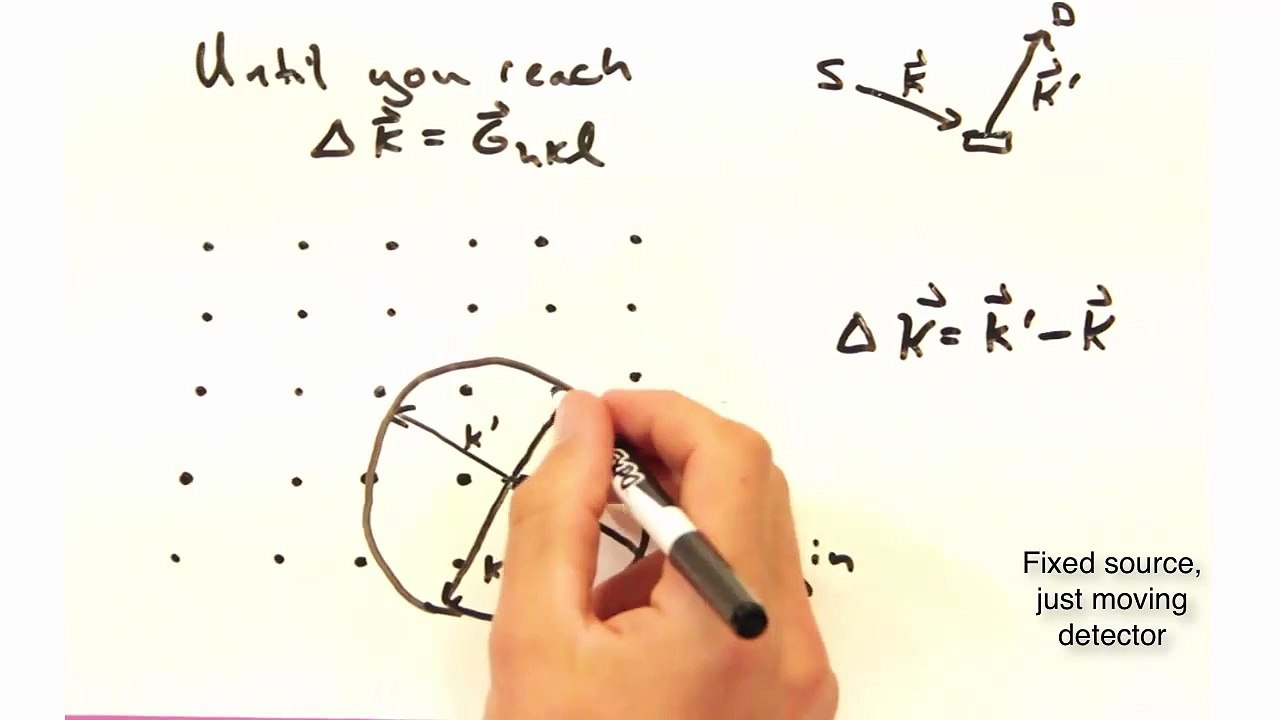 Until you reach
Δ k⃗ = G⃗hkl
S k⃗ k⃗' D
Δ k⃗ = k⃗' - k⃗
k'
k
in
Fixed source,
just moving
detector